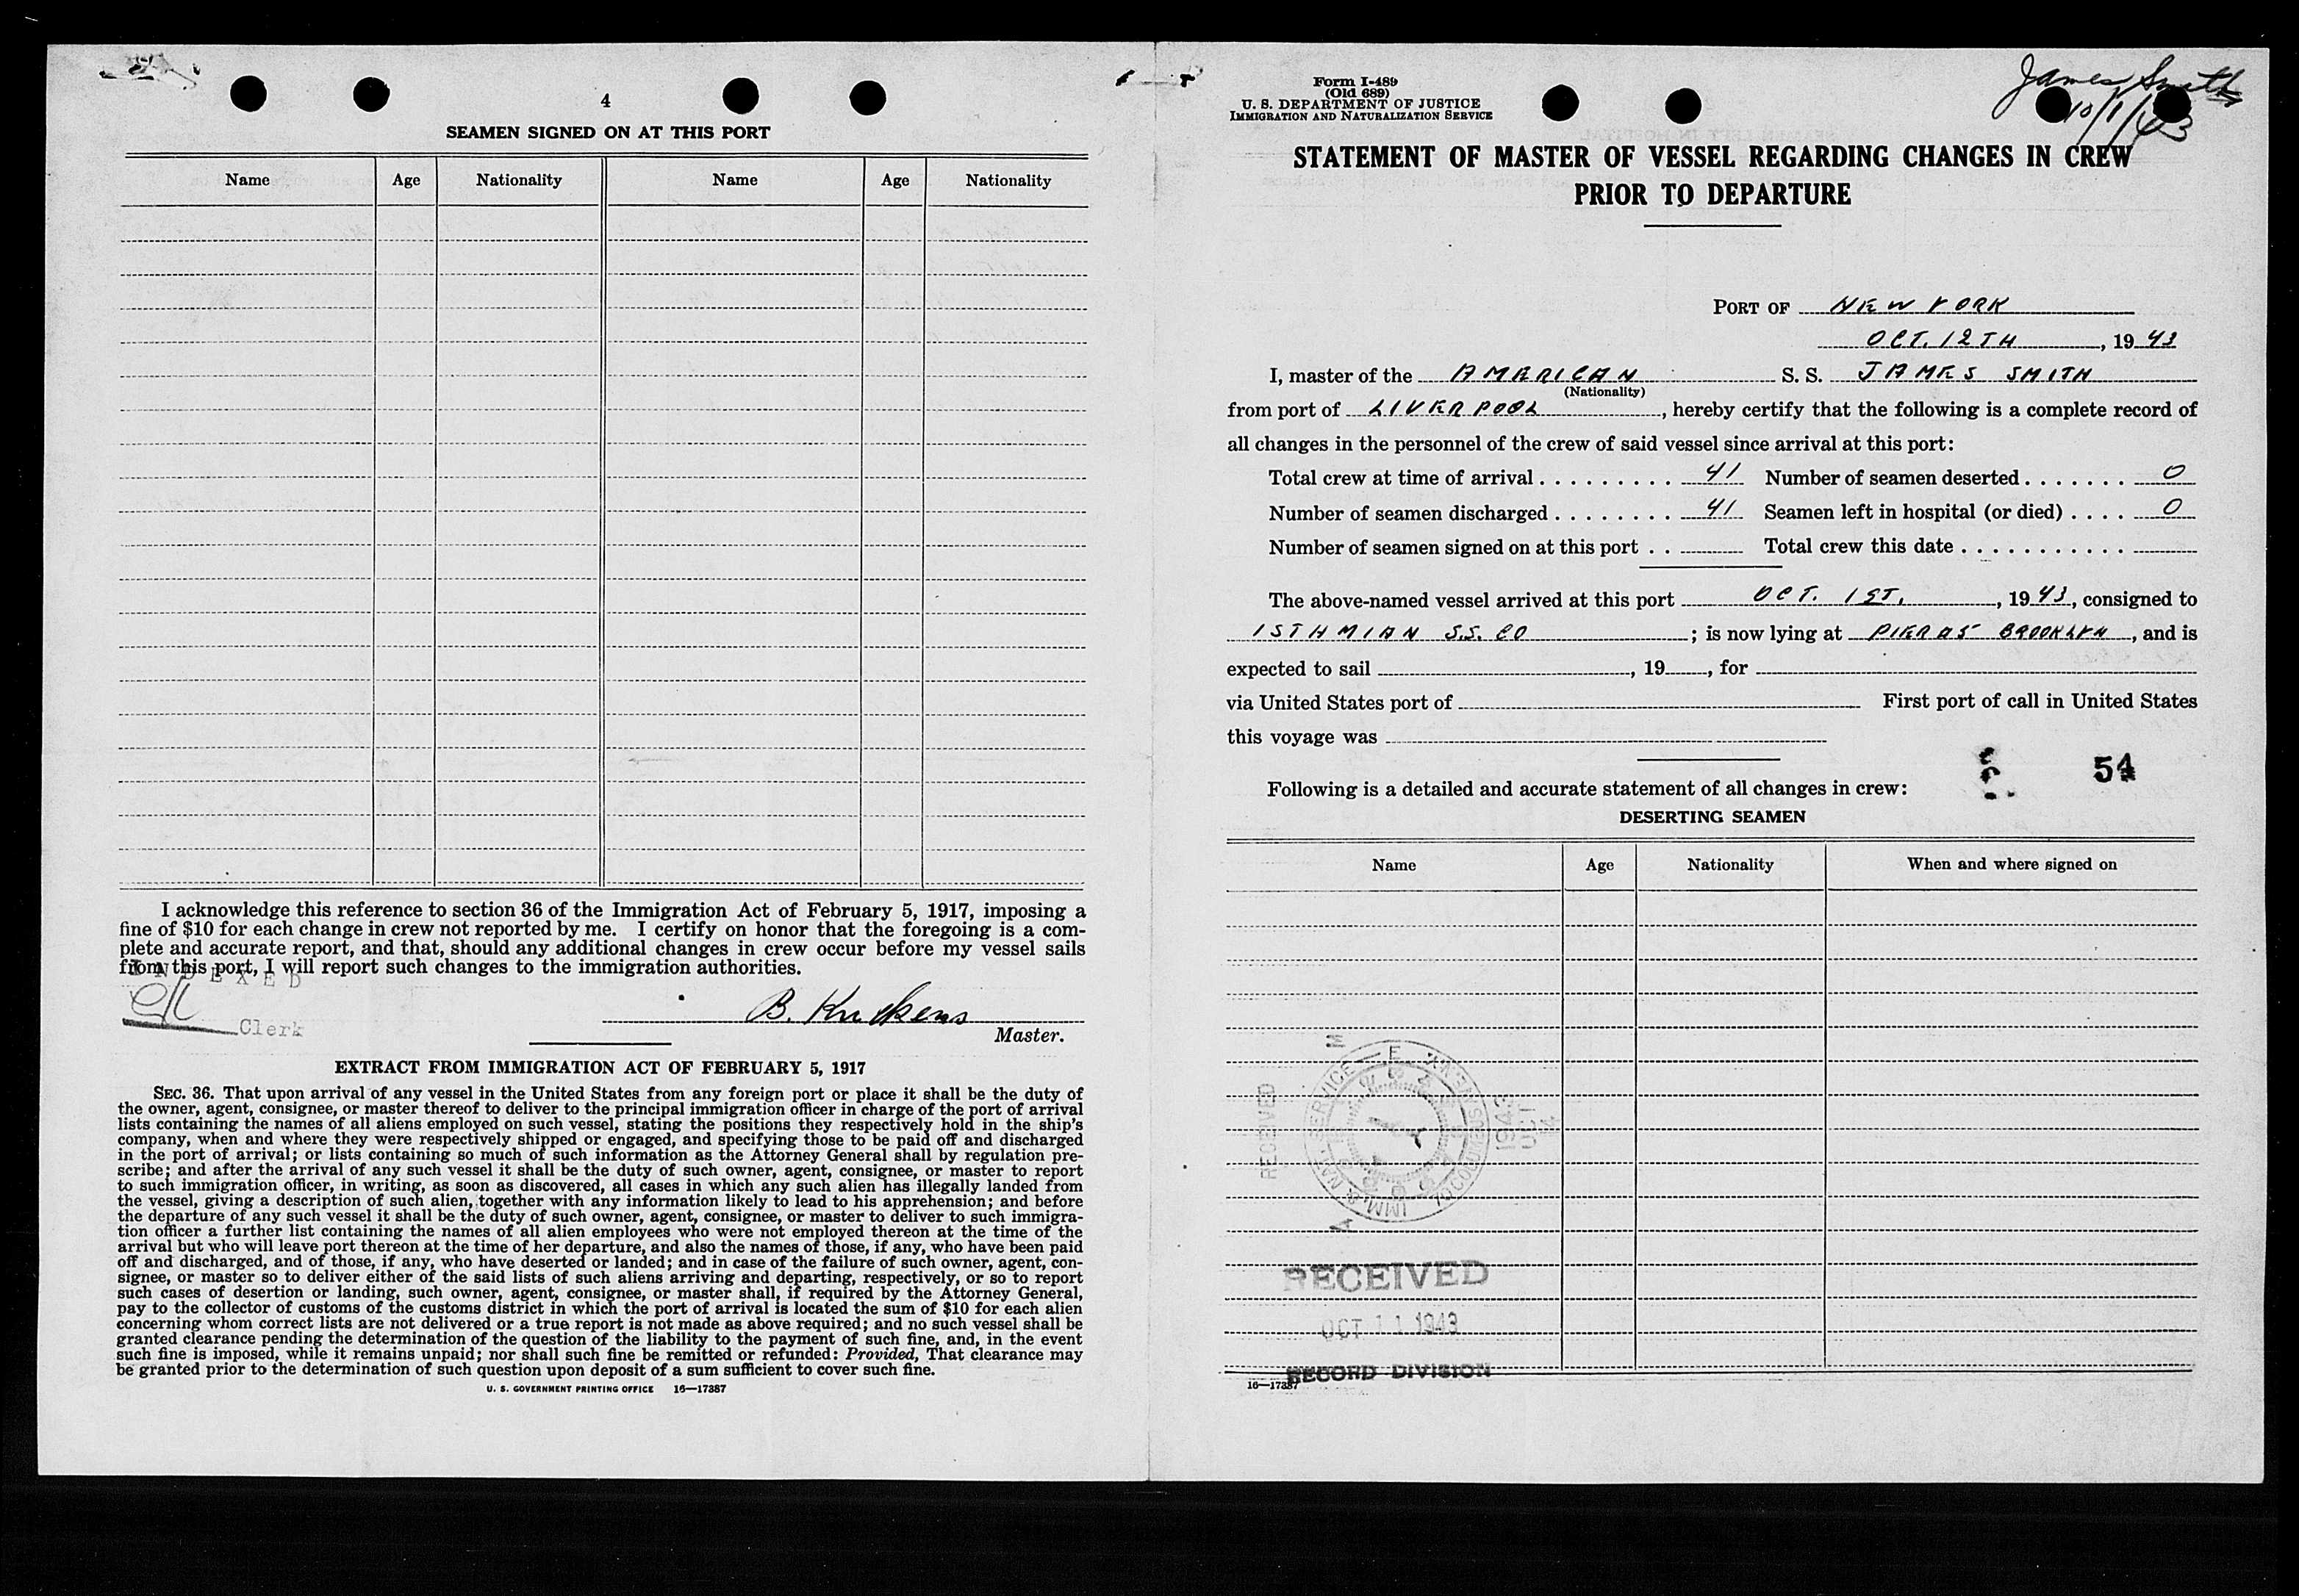 4
SEAMEN SIGNED ON AT THIS PORT
Name Age Nationality Name Age Nationality
I acknowledge this reference to section 36 of the Immigration Act of February 5, 1917, imposing a
fine of $10 for each change in crew not reported by me. I certify on honor that the foregoing is a com-
plete and accurate report, and that, should any additional changes in crew occur before my vessel sails
from this port, I will report such changes to the immigration authorities.
INDEXED
Clerk
B.
Master.
EXTRACT FROM IMMIGRATION ACT OF FEBRUARY 5, 1917
SEC. 36. That upon arrival of any vessel in the United States from any foreign port or place it shall be the duty of
the owner, agent, consignee, or master thereof to deliver to the principal immigration officer in charge of the port of arrival
lists containing the names of all aliens employed on such vessel, stating the positions they respectively hold in the ship's
company, when and where they were respectively shipped or engaged, and specifying those to be paid off and discharged
in the port of arrival; or lists containing so much of such information as the Attorney General shall by regulation pre-
scribe; and after the arrival of any such vessel it shall be the duty of such owner, agent, consignee, or master to report
to such immigration officer, in writing, as soon as discovered, all cases in which any such alien has illegally landed from
the vessel, giving a description of such alien, together with any information likely to lead to his apprehension; and before
the departure of any such vessel it shall be the duty of such owner, agent, consignee, or master to deliver to such immigra-
tion officer a further list containing the names of all alien employees who were not employed thereon at the time of the
arrival but who will leave port thereon at the time of her departure, and also the names of those, if any, who have been paid
off and discharged, and of those, if any, who have deserted or landed; and in case of the failure of such owner, agent, con-
signee, or master so to deliver either of the said lists of such aliens arriving and departing, respectively, or so to report
such cases of desertion or landing, such owner, agent, consignee, or master shall, if required by the Attorney General,
pay to the collector of customs of the customs district in which the port of arrival is located the sum of $10 for each alien
concerning whom correct lists are not delivered or a true report is not made as above required; and no such vessel shall be
granted clearance pending the determination of the question of the liability to the payment of such fine, and, in the event
such fine is imposed, while it remains unpaid; nor shall such fine be remitted or refunded: Provided, That clearance may
be granted prior to the determination of such question upon deposit of a sum sufficient to cover such fine.
U. S. GOVERNMENT PRINTING OFFICE 16—17387
Form I-489
(Old 689)
U. S. DEPARTMENT OF JUSTICE
IMMIGRATION AND NATURALIZATION SERVICE
James Smith
10/1/43
STATEMENT OF MASTER OF VESSEL REGARDING CHANGES IN CREW
PRIOR TO DEPARTURE
PORT OF NEW YORK
OCT. 12TH, 1943
I, master of the AMERICAN S. S. JAMES SMITH
(Nationality)
from port of LIVERPOOL, hereby certify that the following is a complete record of
all changes in the personnel of the crew of said vessel since arrival at this port:
Total crew at time of arrival . . . . . . . . . 41 Number of seamen deserted . . . . . . . 0
Number of seamen discharged . . . . . . . . 41 Seamen left in hospital (or died) . . . . 0
Number of seamen signed on at this port . . Total crew this date . . . . . . . . . . .
The above-named vessel arrived at this port OCT. 1ST., 1943, consigned to
ISTHMIAN S.S. CO ; is now lying at PIER BROOKLYN, and is
expected to sail , 19 , for
via United States port of First port of call in United States
this voyage was
54
Following is a detailed and accurate statement of all changes in crew:
DESERTING SEAMEN
Name Age Nationality When and where signed on
RECEIVED
1943 OCT
RECEIVED
OCT 11 1943
RECORD DIVISION
16—17387